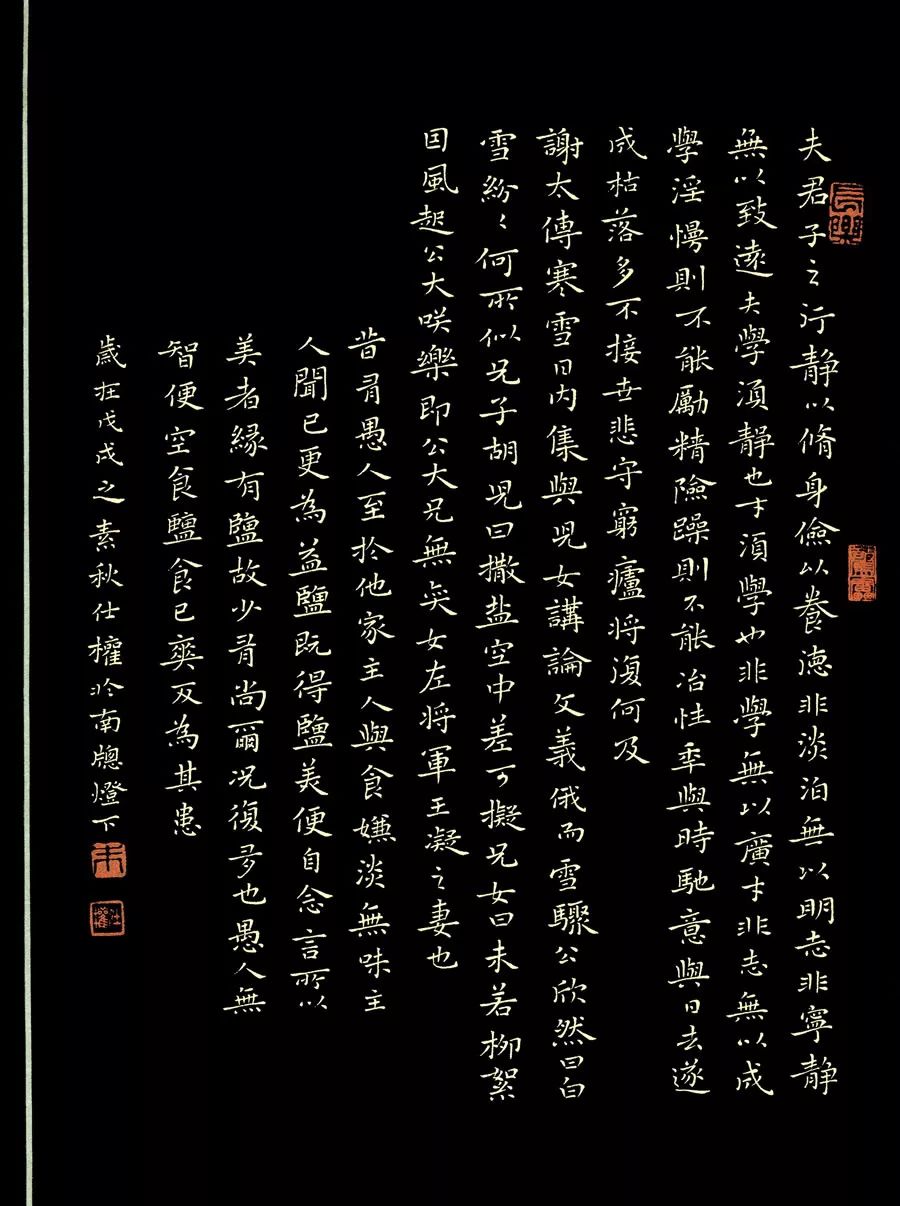 夫君子之行静以脩身儉以養德非淡泊無以明志非寧静
無以致遠夫學須静也才須學也非學無以廣才非志無以成
學淫慢則不能勵精險躁則不能冶性年與時馳意與日去遂
成枯落多不接世悲守窮廬将復何及
謝太傅寒雪日内集與兒女講論文義俄而雪驟公欣然曰白
雪紛〻何所似兄子胡兒曰撒盐空中差可擬兄女曰未若柳絮
因風起公大咲樂即公大兄無奕女左将軍王凝之妻也
昔有愚人至於他家主人與食嫌淡無味主
人聞已更為益鹽既得鹽美便自念言所以
美者緣有鹽故少有尚爾况復多也愚人無
智便空食鹽食已爽反為其患
歲在戊戌之素秋仕權於南牕燈下